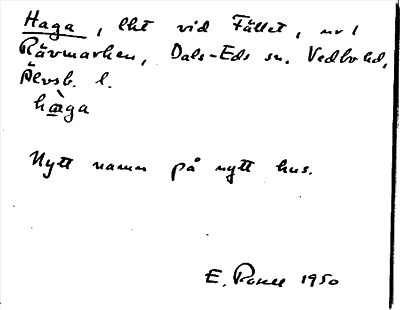 Haga, lht vid Fället, nr 1
Rävmarken, Dals-Eds sn. Vedbo hd,
Älvsb. l.
hàga
Nytt namn på nytt hus.
E. 1950